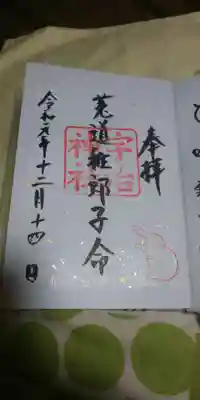 奉拝
宇治
神社
菟道稚郎子命
令和元年十二月十四日